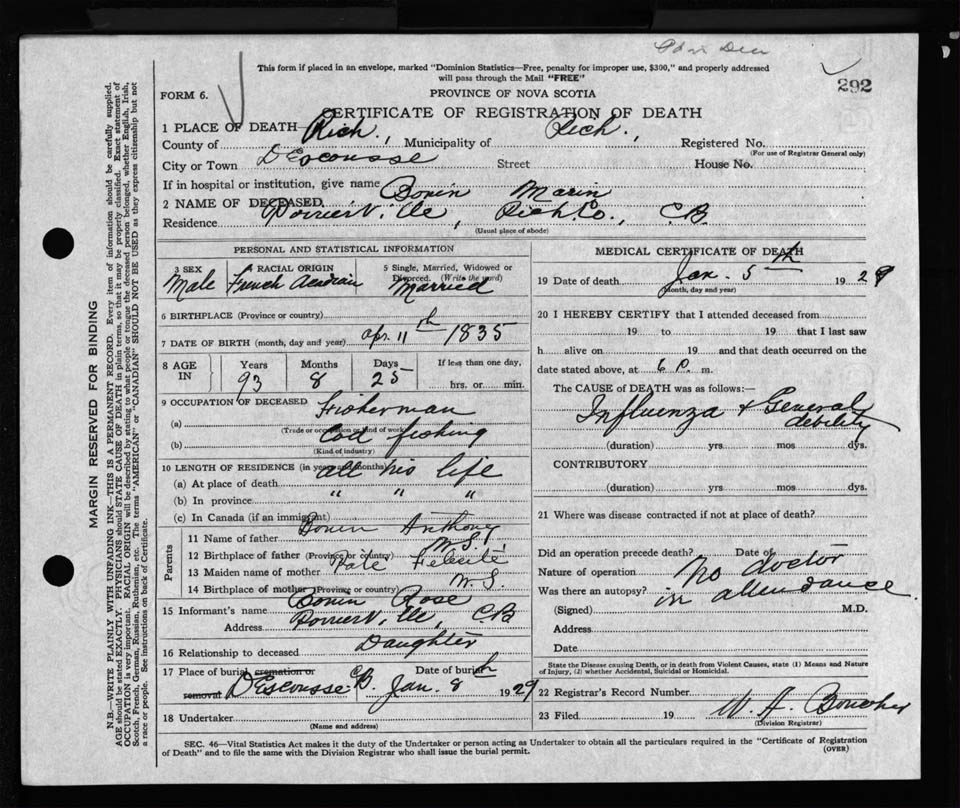 This form if placed in an envelope, marked "Dominion Statistics—Free, penalty for improper use, $300," and properly addressed
will pass through the Mail "FREE"
292
FORM 6.
PROVINCE OF NOVA SCOTIA
CERTIFICATE OF REGISTRATION OF DEATH
1 PLACE OF DEATH—
County of Rich., Municipality of Rich., Registered No.
(For use of Registrar General only)
City or Town D'Escousse Street House No.
If in hospital or institution, give name
2 NAME OF DECEASED Bonin Marin
Residence Poirierville, Rich. Co., C.B.
(Usual place of abode)
PERSONAL AND STATISTICAL INFORMATION
3 SEX Male
4 RACIAL ORIGIN French Acadian
5 Single, Married, Widowed or Divorced. (Write the word) Married
6 BIRTHPLACE (Province or country)
7 DATE OF BIRTH (month, day and year) Apr. 11th 1835
8 AGE IN Years 93 Months 8 Days 25 If less than one day, hrs. or min.
9 OCCUPATION OF DECEASED
(a) Fisherman
(Trade or occupation or kind of work)
(b) Cod fishing
(Kind of industry)
10 LENGTH OF RESIDENCE (in years and months)
(a) At place of death all his life
(b) In province " " "
(c) In Canada (if an immigrant)
Parents
11 Name of father Bonin Anthony
12 Birthplace of father (Province or country) N.S.
13 Maiden name of mother Felicité
14 Birthplace of mother (Province or country) N.S.
15 Informant's name Bonin Rose
Address Poirierville, C.B.
16 Relationship to deceased Daughter
17 Place of burial cremation or removal D'Escousse C.B. Date of burial Jan. 8th 1929
18 Undertaker
(Name and address)
MEDICAL CERTIFICATE OF DEATH
19 Date of death Jan. 5th 1929
(Month, day and year)
20 I HEREBY CERTIFY that I attended deceased from
19 to 19 that I last saw
h alive on 19 and that death occurred on the
date stated above, at 6 P. m.
The CAUSE of DEATH was as follows:—
Influenza & General debility
(duration) yrs. mos. dys.
CONTRIBUTORY
(duration) yrs. mos. dys.
21 Where was disease contracted if not at place of death?
Did an operation precede death? Date of
Nature of operation No doctor
Was there an autopsy? in attendance
(Signed) M.D.
Address
Date
State the Disease causing Death, or in death from Violent Causes, state (1) Means and Nature
of Injury, (2) whether Accidental, Suicidal or Homicidal.
22 Registrar's Record Number
23 Filed 19 W. A. Boucher
(Division Registrar)
SEC. 46—Vital Statistics Act makes it the duty of the Undertaker or person acting as Undertaker to obtain all the particulars required in the "Certificate of Registration
of Death" and to file the same with the Division Registrar who shall issue the burial permit. (OVER)
MARGIN RESERVED FOR BINDING
N.B.—WRITE PLAINLY WITH UNFADING INK—THIS IS A PERMANENT RECORD. Every item of information should be carefully supplied.
AGE should be stated EXACTLY. PHYSICIANS should STATE CAUSE OF DEATH in plain terms, so that it may be properly classified. Exact statement of
OCCUPATION is very important. RACIAL ORIGIN will be described by stating to what people or tongue the deceased person belonged, whether English, Irish,
Scotch, French, German, Russian, Ruthenian, etc. The terms "AMERICAN" or "CANADIAN" SHOULD NOT BE USED as they express citizenship but not
a race or people. See instructions on back of Certificate.